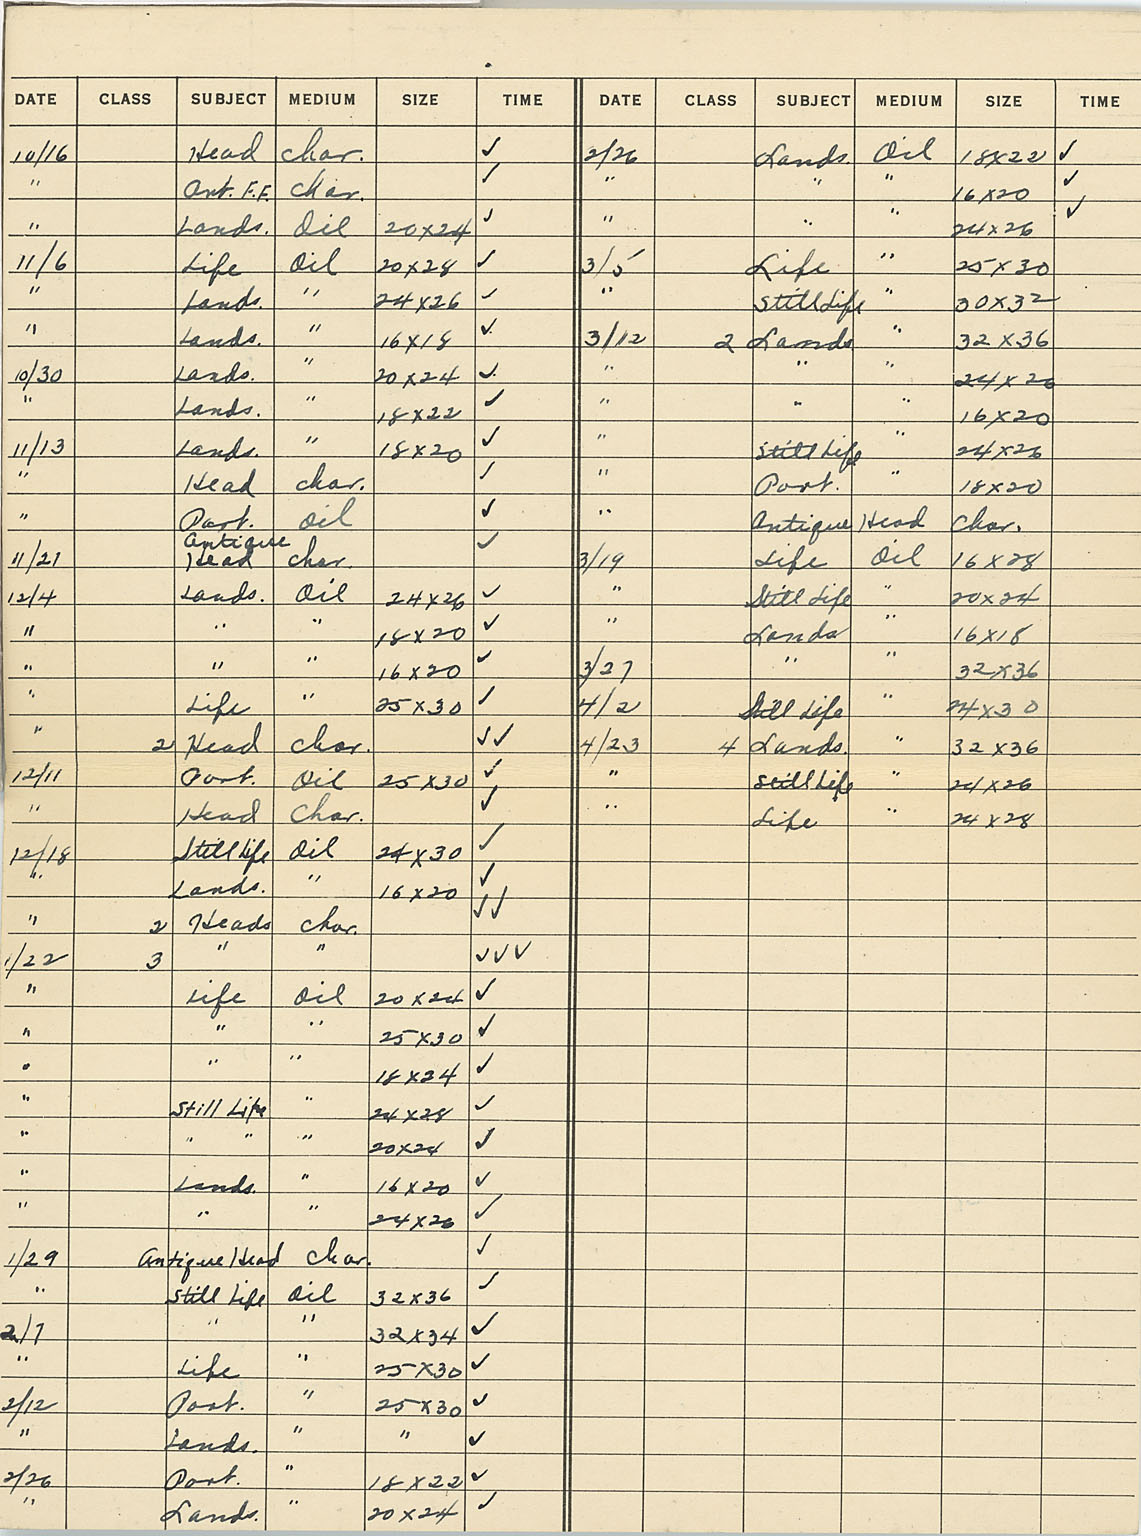 DATE CLASS SUBJECT MEDIUM SIZE TIME
10/16 Head Char. ✓
" Ant. F.F. Char. ✓
" Lands. Oil 20x24 ✓
11/6 Life Oil 20x28 ✓
" Lands. " 24x26 ✓
" Lands. " 16x18 ✓
10/30 Lands. " 20x24 ✓
" Lands. " 18x22 ✓
11/13 Lands. " 18x20 ✓
" Head Char. ✓
" Port. Oil ✓
11/21 Antique Head Char. ✓
12/4 Lands. Oil 24x26 ✓
" " " 18x20 ✓
" " " 16x20 ✓
" Life " 25x30 ✓
" 2 Head Char. ✓✓
12/11 Port. Oil 25x30 ✓
" Head Char. ✓
12/18 Still Life Oil 24x30 ✓
" Lands. " 16x20 ✓
" 2 Heads Char. ✓✓
1/22 3 " " ✓✓✓
" Life Oil 20x24 ✓
" " " 25x30 ✓
" " " 18x24 ✓
" Still Life " 24x28 ✓
" " " " 20x24 ✓
" Lands. " 16x20 ✓
" " " 24x26 ✓
1/29 Antique Head Char. ✓
" Still Life Oil 32x36 ✓
2/7 " " 32x34 ✓
" Life " 25x30 ✓
2/12 Port. " 25x30 ✓
" Lands. " " ✓
2/26 Port. " 18x22 ✓
" Lands. " 20x24 ✓
DATE CLASS SUBJECT MEDIUM SIZE TIME
2/26 Lands. Oil 18x22 ✓
" " " 16x20 ✓
" " " 24x26 ✓
3/5 Life " 25x30
" Still Life " 30x32
3/12 2 Lands " 32x36
" " " 24x26
" " " 16x20
" Still Life " 24x26
" Port. " 18x20
" Antique Head Char.
3/19 Life Oil 16x28
" Still Life " 20x24
" Lands " 16x18
3/27 " " 32x36
4/2 Still Life " 24x30
4/23 4 Lands. " 32x36
" Still Life " 24x26
" Life " 24x28